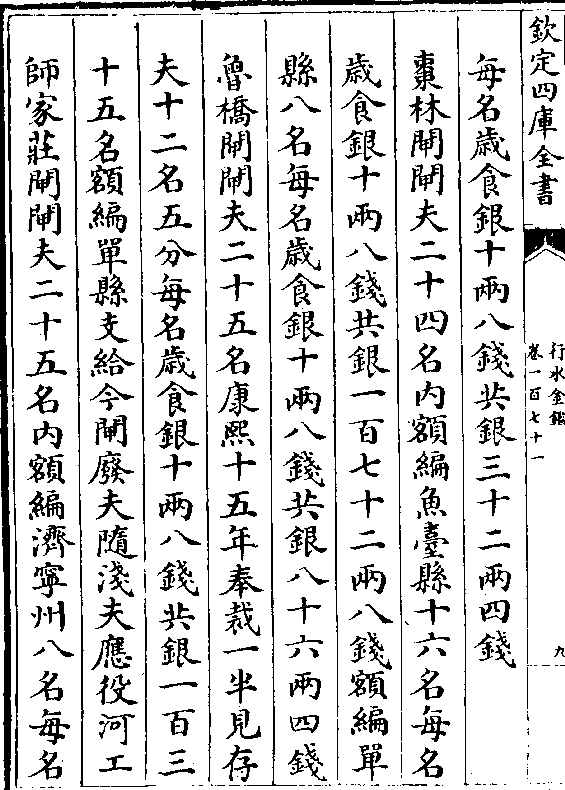 欽定四庫全書
行水金鑑
卷一百七十一
九
每名歲食銀十兩八錢共銀三十二兩四錢
棗林閘閘夫二十四名內額編魚臺縣十六名每名
歲食銀十兩八錢共銀一百七十二兩八錢額編單
縣八名每名歲食銀十兩八錢共銀八十六兩四錢
魯橋閘閘夫二十五名康熙十五年奉裁一半見存
夫十二名五分每名歲食銀十兩八錢共銀一百三
十五名額編單縣支給今閘廢夫隨淺夫應役河工
師家莊閘閘夫二十五名內額編濟寧州八名每名